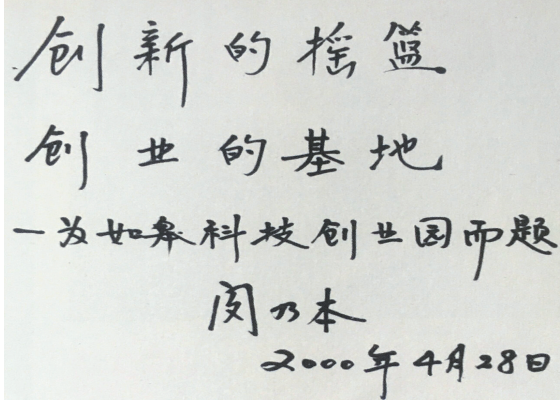 创新的摇篮
创业的基地
一为如皋科技创业园而题
闵乃本
2000年4月28日